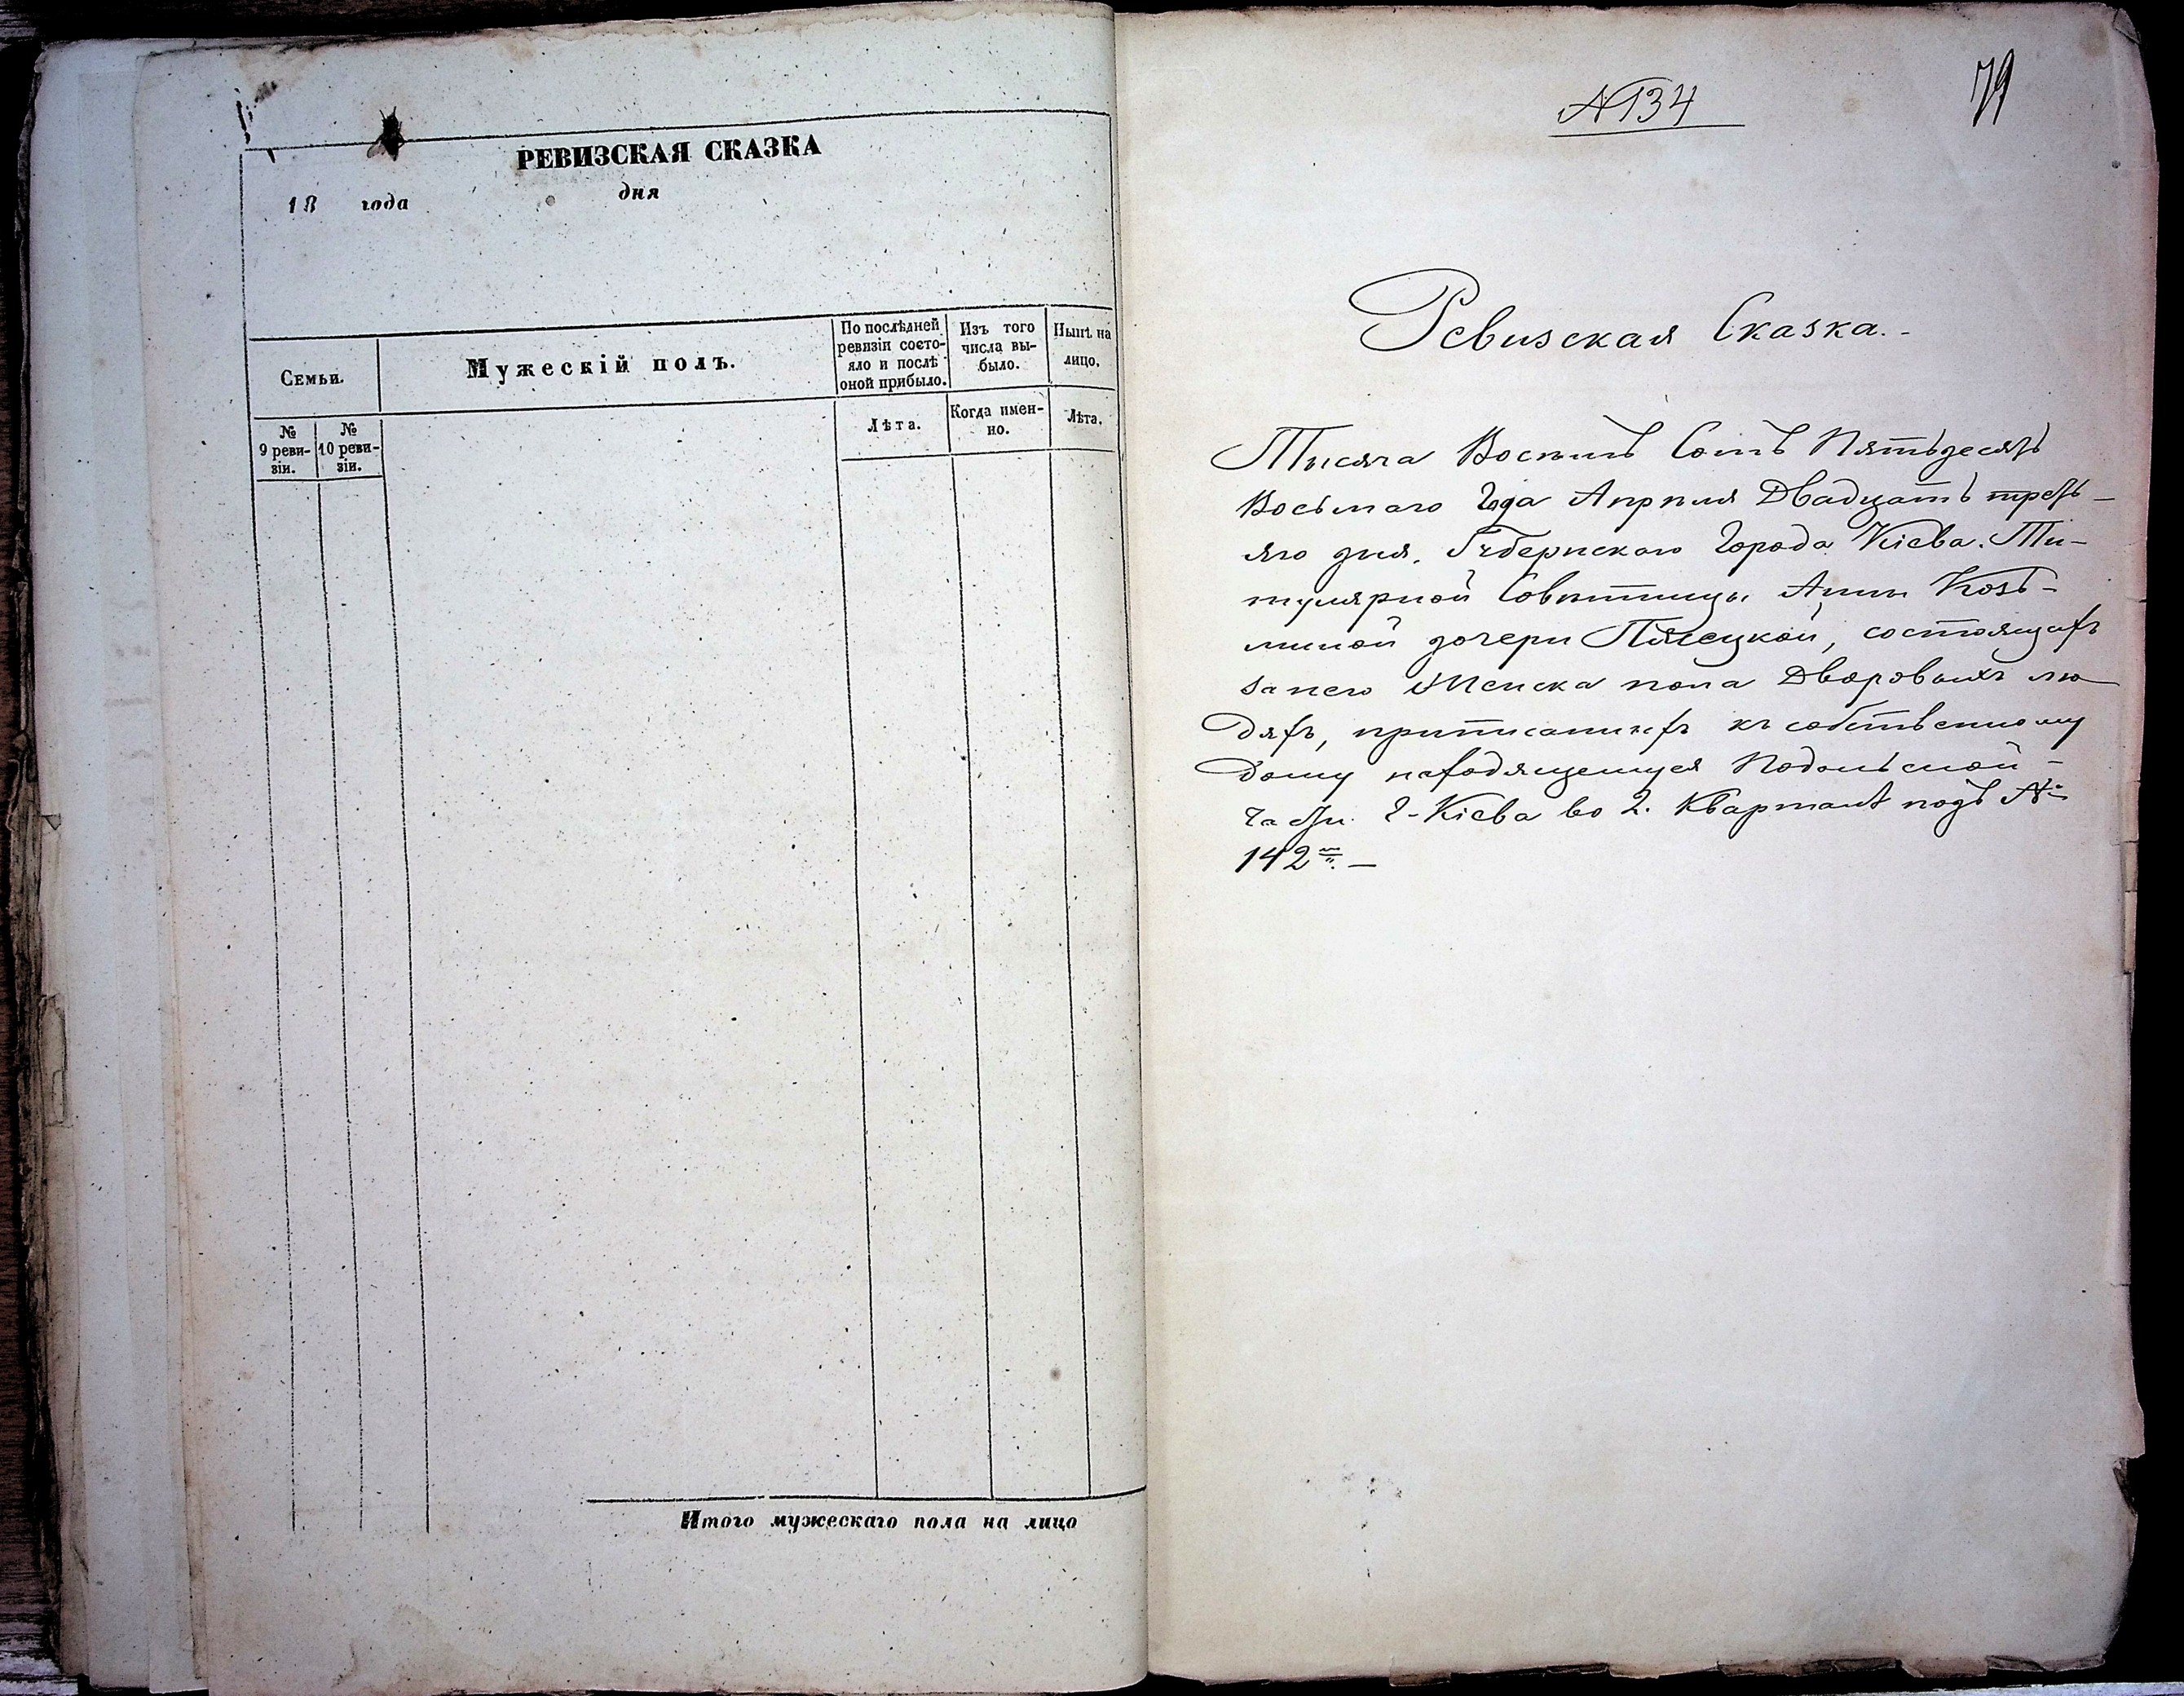 РЕВИЗСКАЯ СКАЗКА
18 года дня
Семьи.
Мужескій полъ.
По послѣдней
ревизіи состо-
яло и послѣ
оной прибыло.
Изъ того
числа вы-
было.
Нынѣ на
лицо.
№
9 реви-
зіи.
№
10 реви-
зіи.
Лѣта.
Когда имен-
но.
Лѣта.
Итого мужескаго пола на лицо
№ 134
79
Ревизская Сказка.-
Тысяча Восемь Сотъ Пятьдесятъ
Восьмаго Года Апрѣля Двадцать треть-
яго дня. Губернскаго Города Кіева. Ти-
тулярной Совѣтницы Анны Козь-
миной дочери Пясецкой, состоящихъ
за нею Женска пола Дворовыхъ лю-
дяхъ, приписанныхъ къ собственному
дому находящемуся Подольской-
части. г-Кіева во 2. Кварталѣ подъ №
142мъ.-